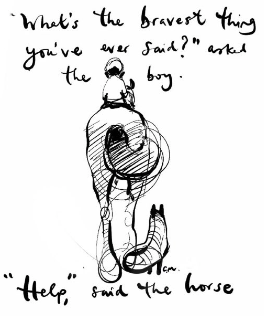 "What's the bravest thing
you've ever said?" asked
the boy.
cm.
"Help," said the horse